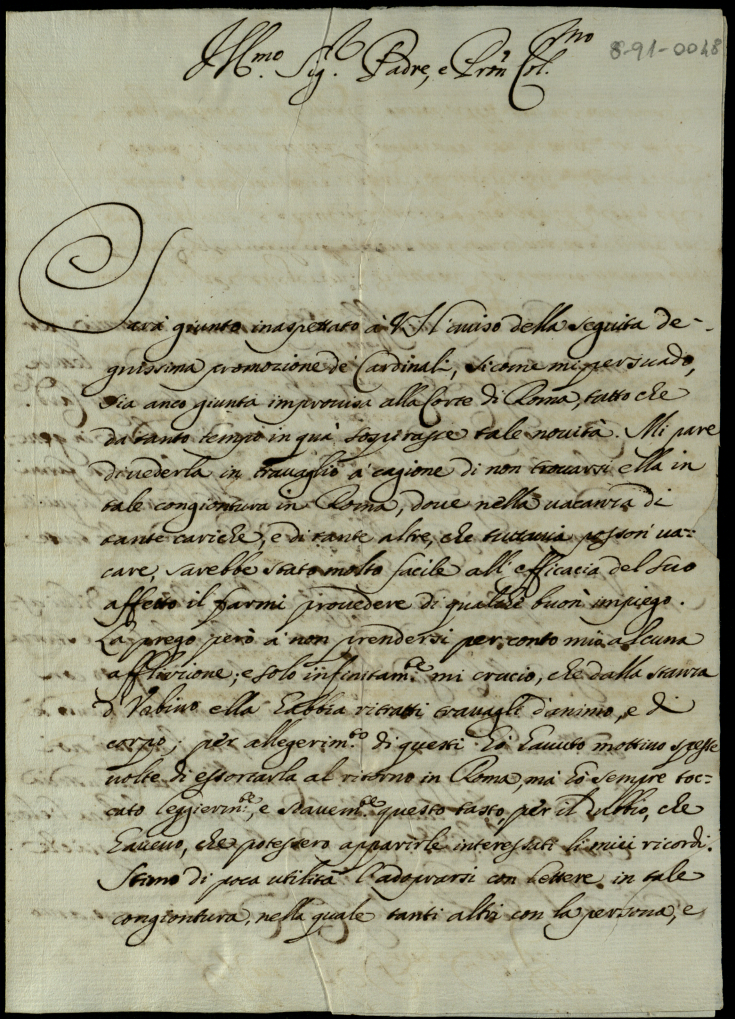 8-91-0048
Ill.mo Sig.r Padre, e Pron Col.mo
Sarà giunto inaspettato à V.S. l'auiso della seguita de-
gnissima promozione de Cardinali, sicome mi persuado,
sia anco giunta improuisa alla Corte di Roma, tutto che
da tanto tempo in quà sospirasse tale nouità. Mi pare
di uederla in trauaglio à cagione di non trouarsi ella in
tale congiontura in Roma, doue nella uacanza di
tante cariche, e di tante altre, che tuttauia posson' ua-
care, sarebbe stato molto facile all'efficacia del suo
affetto il farmi prouedere di qualche buon' impiego.
La prego però à non prendersi per conto mio alcuna
afflizione; e solo infinitam.te mi crucio, che dalla stanza
d'Vrbino ella habbia ritratti trauagli d'animo, e di
corpo; per allegerim.to di questi hò hauuto mottiuo spesse
uolte di essortarla al ritorno in Roma, mà hò sempre toc-
cato leggierm.te, e soauem.te questo tasto, per il dubbio, che
haueuo, che potessero apparirle interessati li miei ricordi.
Stimo di poca utilità l'adoprarsi con lettere in tale
congiontura, nella quale tanti altri con la persona, e